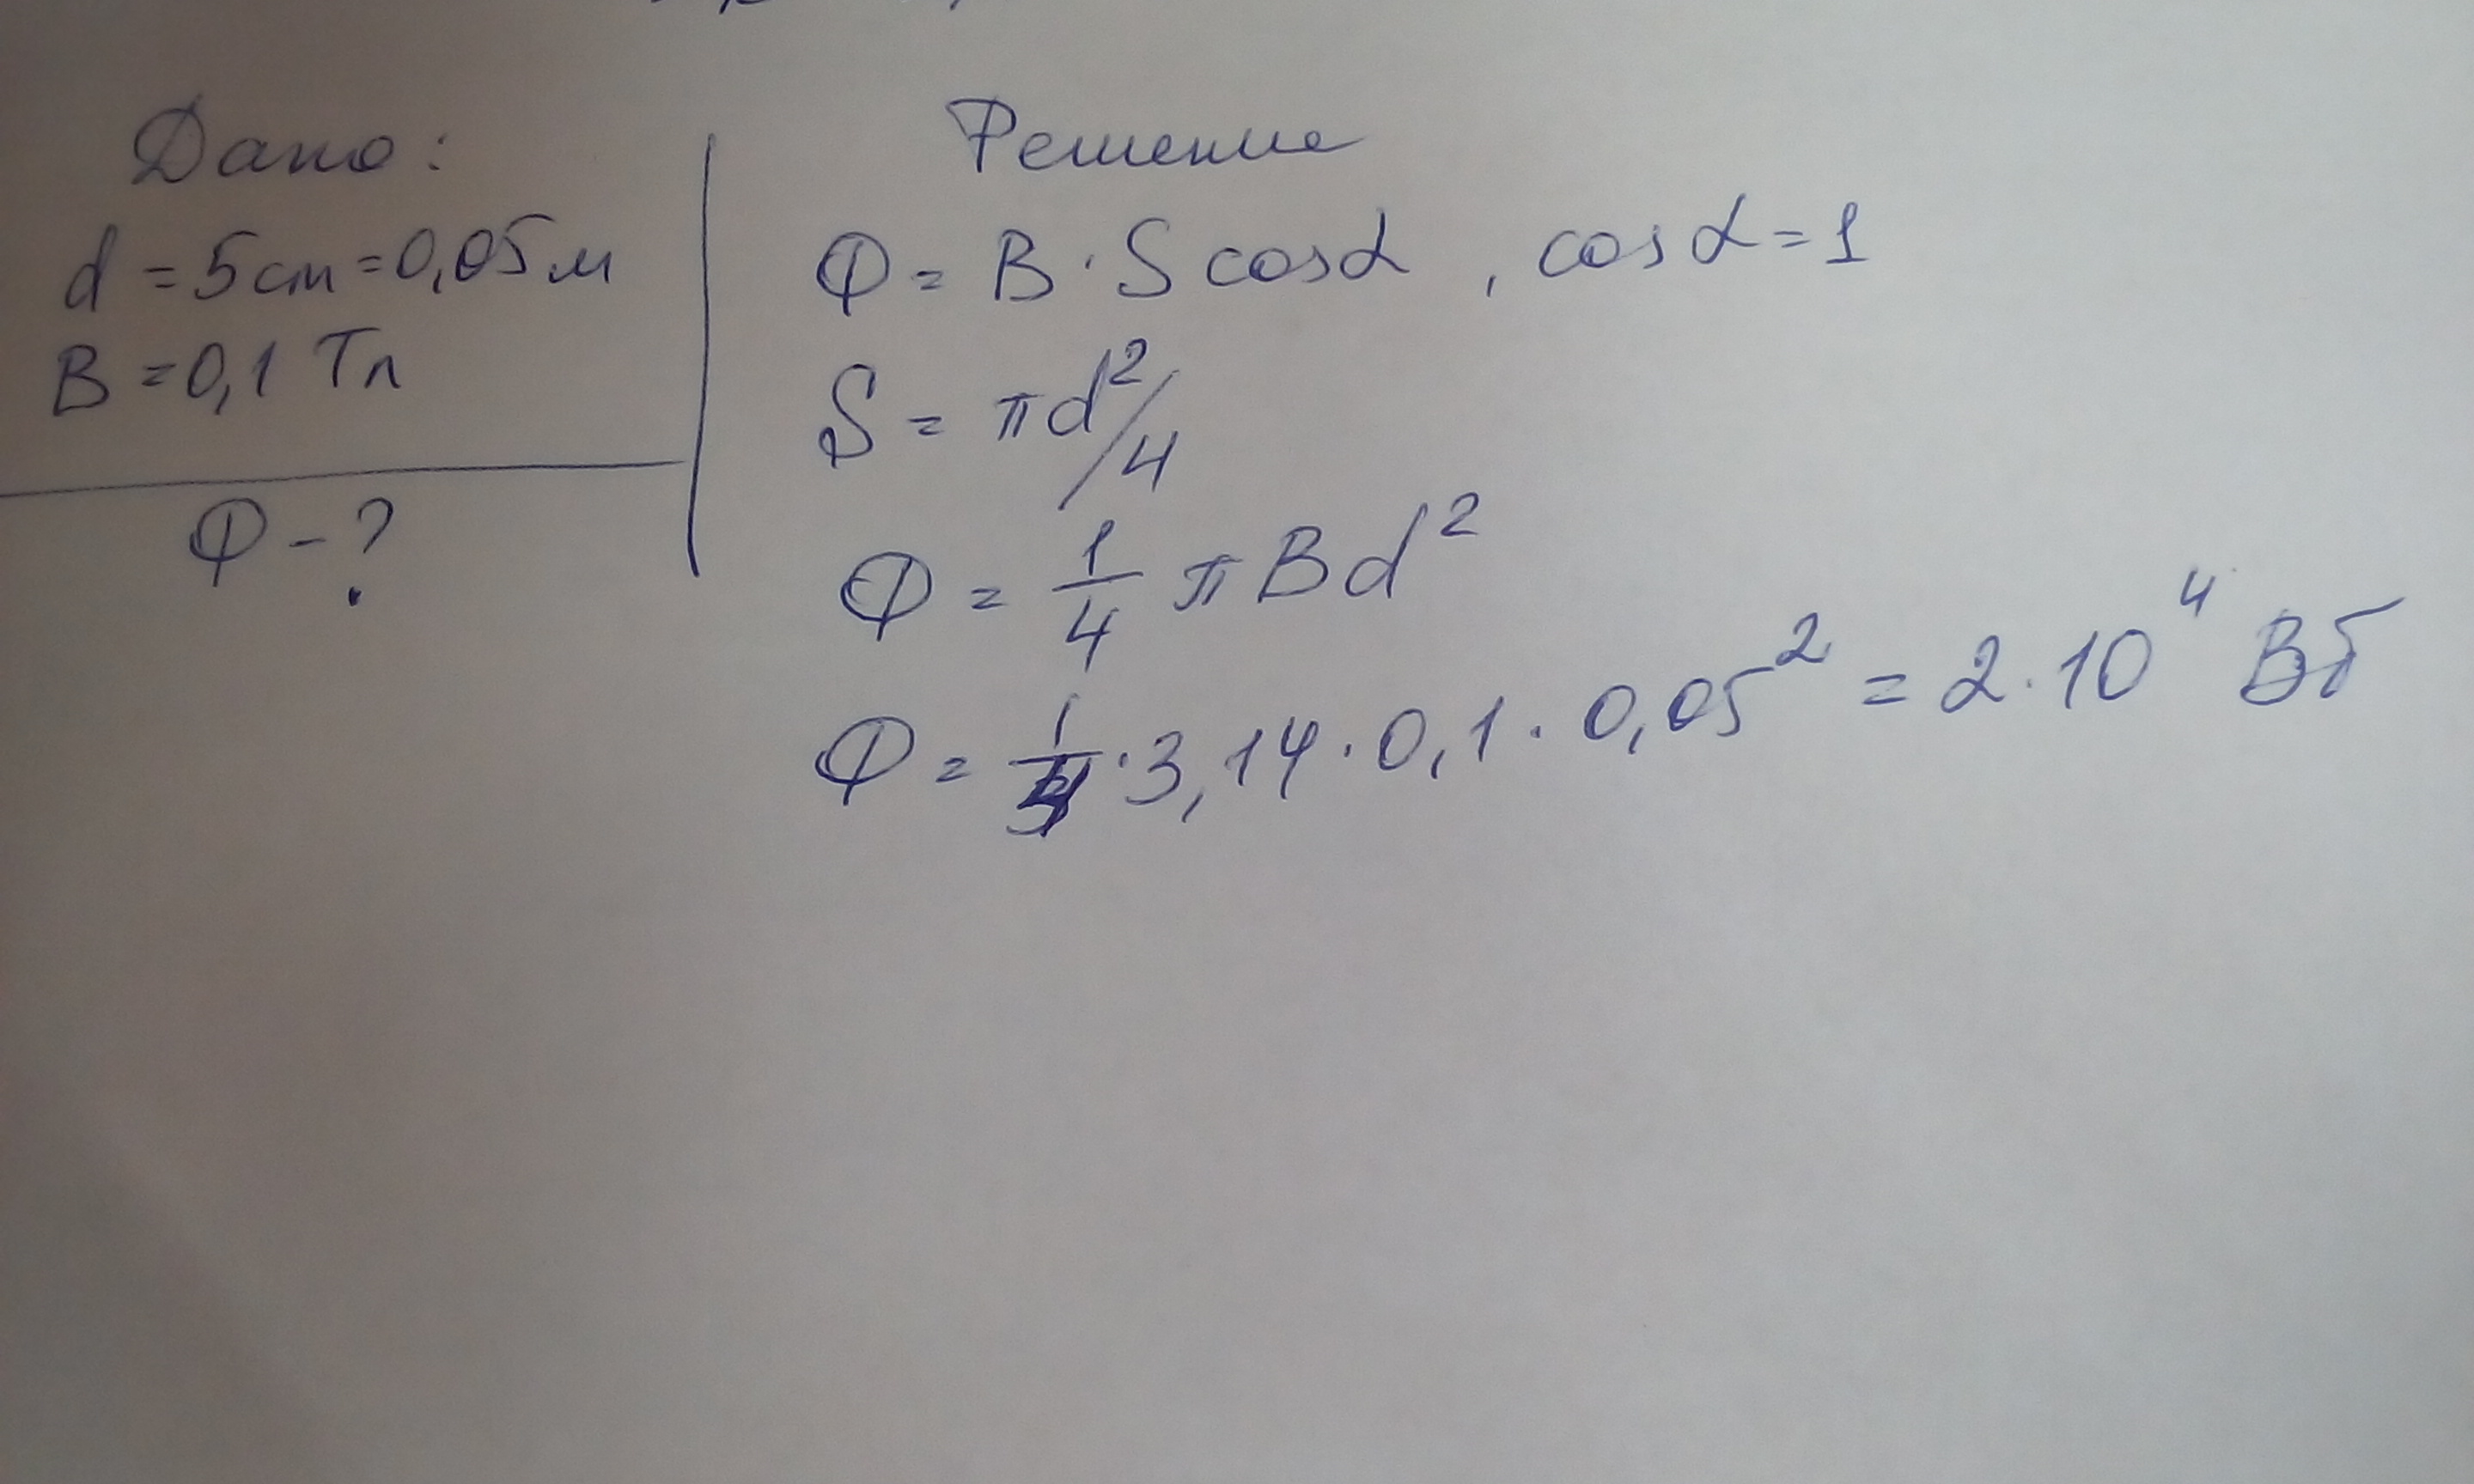 Дано:
d = 5 см = 0,05 м
B = 0,1 Тл
Ф - ?
Решение
Ф = B · S cosα , cos α = 1
S = πd²/4
Ф = 1/4 π B d²
Ф = 1/4 · 3,14 · 0,1 · 0,05² = 2 · 10⁴ Вб